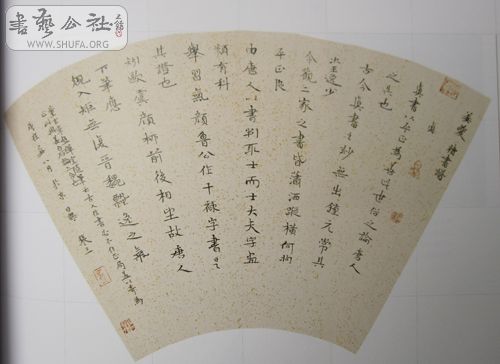 書藝公社
WWW.SHUFA.ORG
姜夔 續書譜
真書以平正為善此世俗之論唐人
之失也
古今真書之妙無出鍾元常其
次王逸少
今觀二家之書皆瀟洒縱橫何拘
平正良
由唐人以書判取士而士大夫字書
類有科
舉習氣顏魯公作干祿字書是
其證也
矧歐虞顏柳前後相望故唐人
下筆應
規入矩無復晉魏飄逸之氣